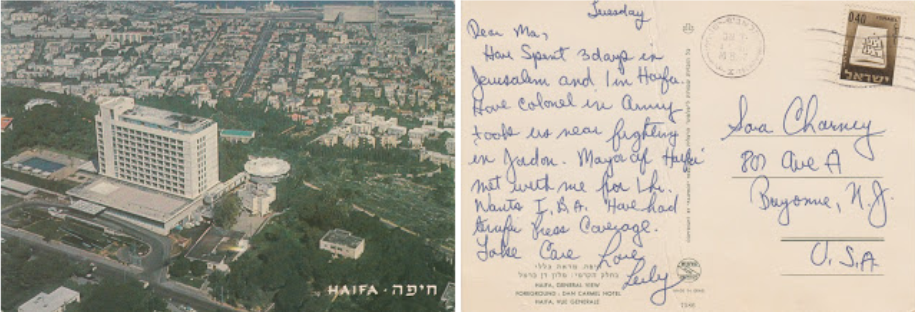 HAIFA · חיפה
Tuesday
Dear Ma,
Have Spent 3 days in
Jerusalem and 1 in Haifa.
Have colonel in Army
took us near fighting
in Jordan. Mayor of Haifa
met with me for 1 hr.
Wants I.B.A. Have had
Press Coverage.
Take Care Love
0.40
ISRAEL
ישראל
Charney
807 Ave A
Bayonne, N.J.
U.S.A
חיפה, מראה כללי
בחלק הקדמי: מלון דן כרמל
HAIFA, GENERAL VIEW
FOREGROUND - DAN CARMEL HOTEL
HAIFA, VUE GENERALE